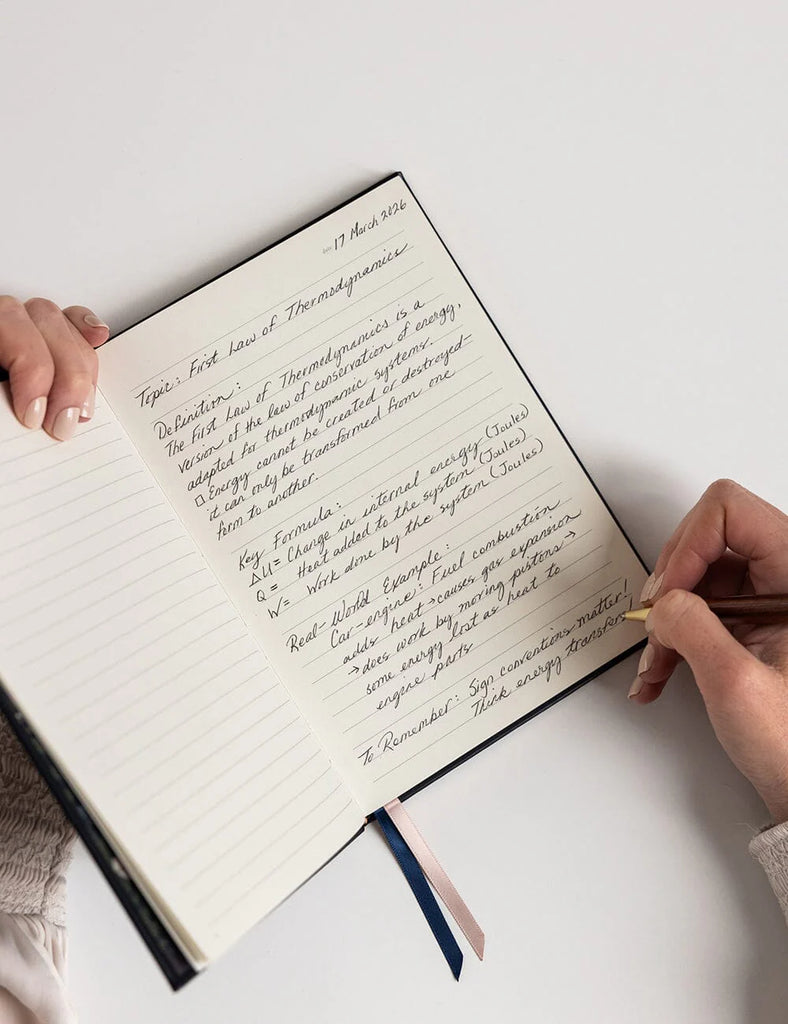 17 March 2026
Topic: First Law of Thermodynamics
Definition:
The First Law of Thermodynamics is a
version of the law of conservation of energy,
adapted for thermodynamic systems.
□ Energy cannot be created or destroyed—
it can only be transformed from one
form to another.
Key Formula:
ΔU = Change in internal energy (Joules)
Q = Heat added to the system (Joules)
W = Work done by the system (Joules)
Real-World Example:
Car-engine: Fuel combustion
adds heat → causes gas expansion
→ does work by moving pistons →
some energy lost as heat to
engine parts
To Remember: Sign conventions matter!
Think energy transfers